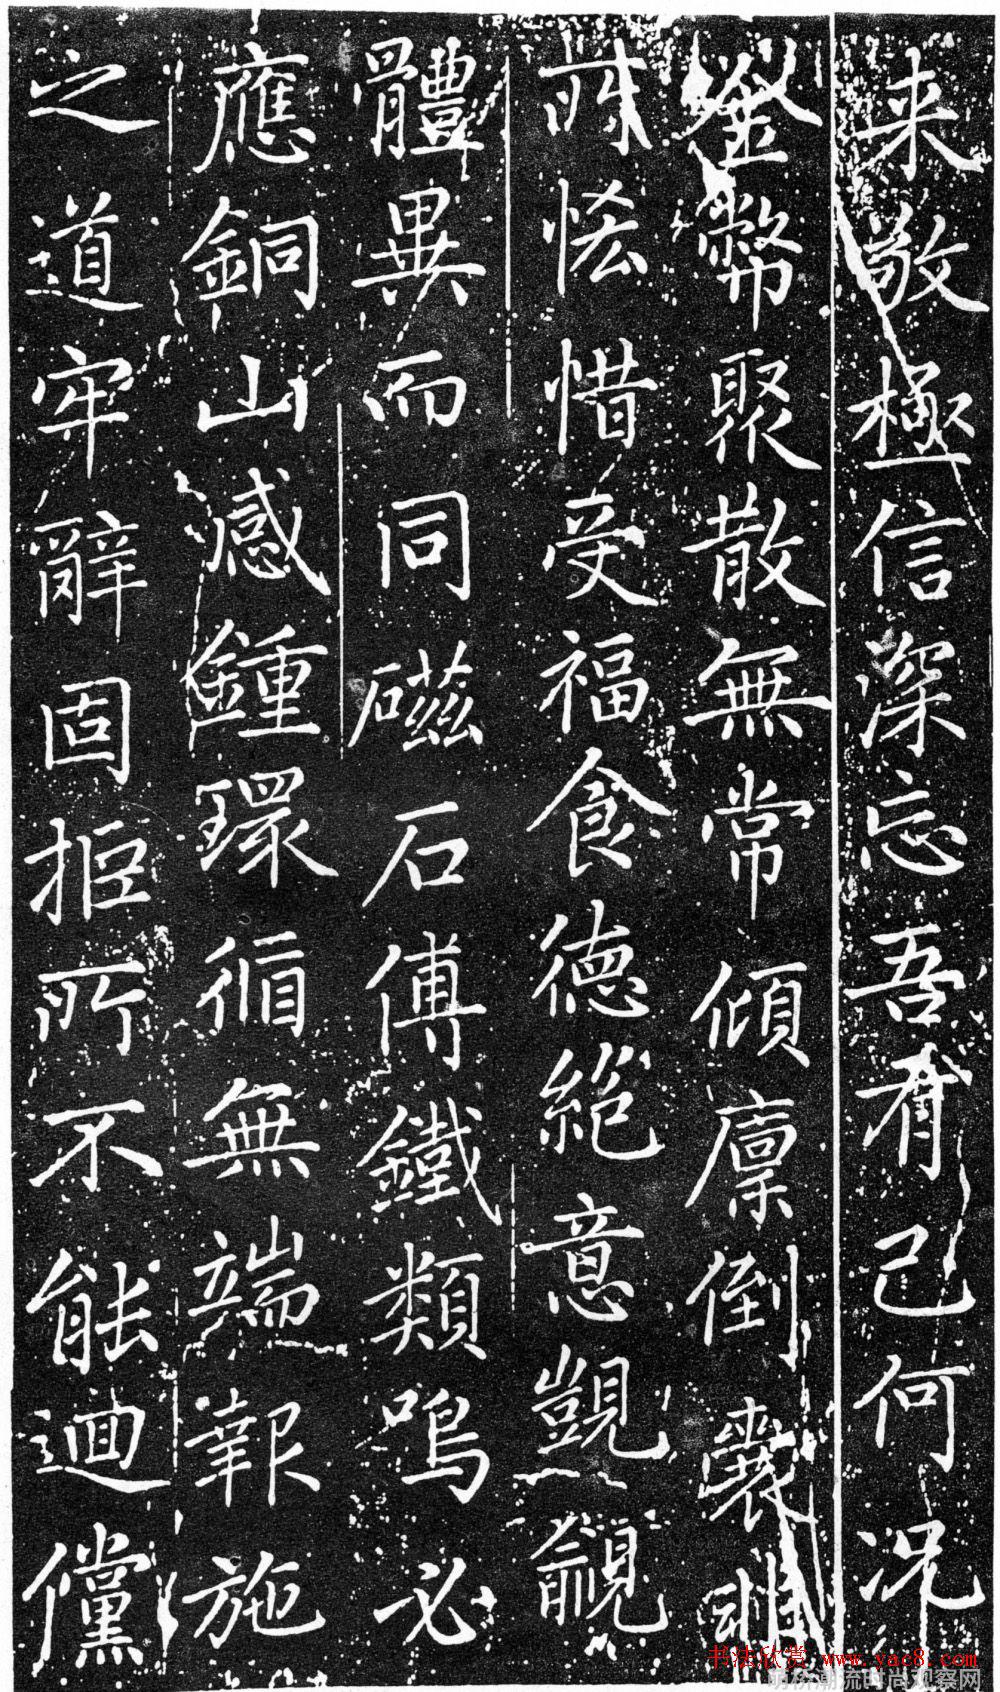 来敬極信深忘吾有己何況
金幣聚散無常傾廪倒囊非
所恡惜受福食德絶意覬覦
體異而同磁石傅鐵類鳴必
應銅山感鍾環循無端報施
之道牢辭固拒所不能迴儻
书法欣赏 www.yac8.com